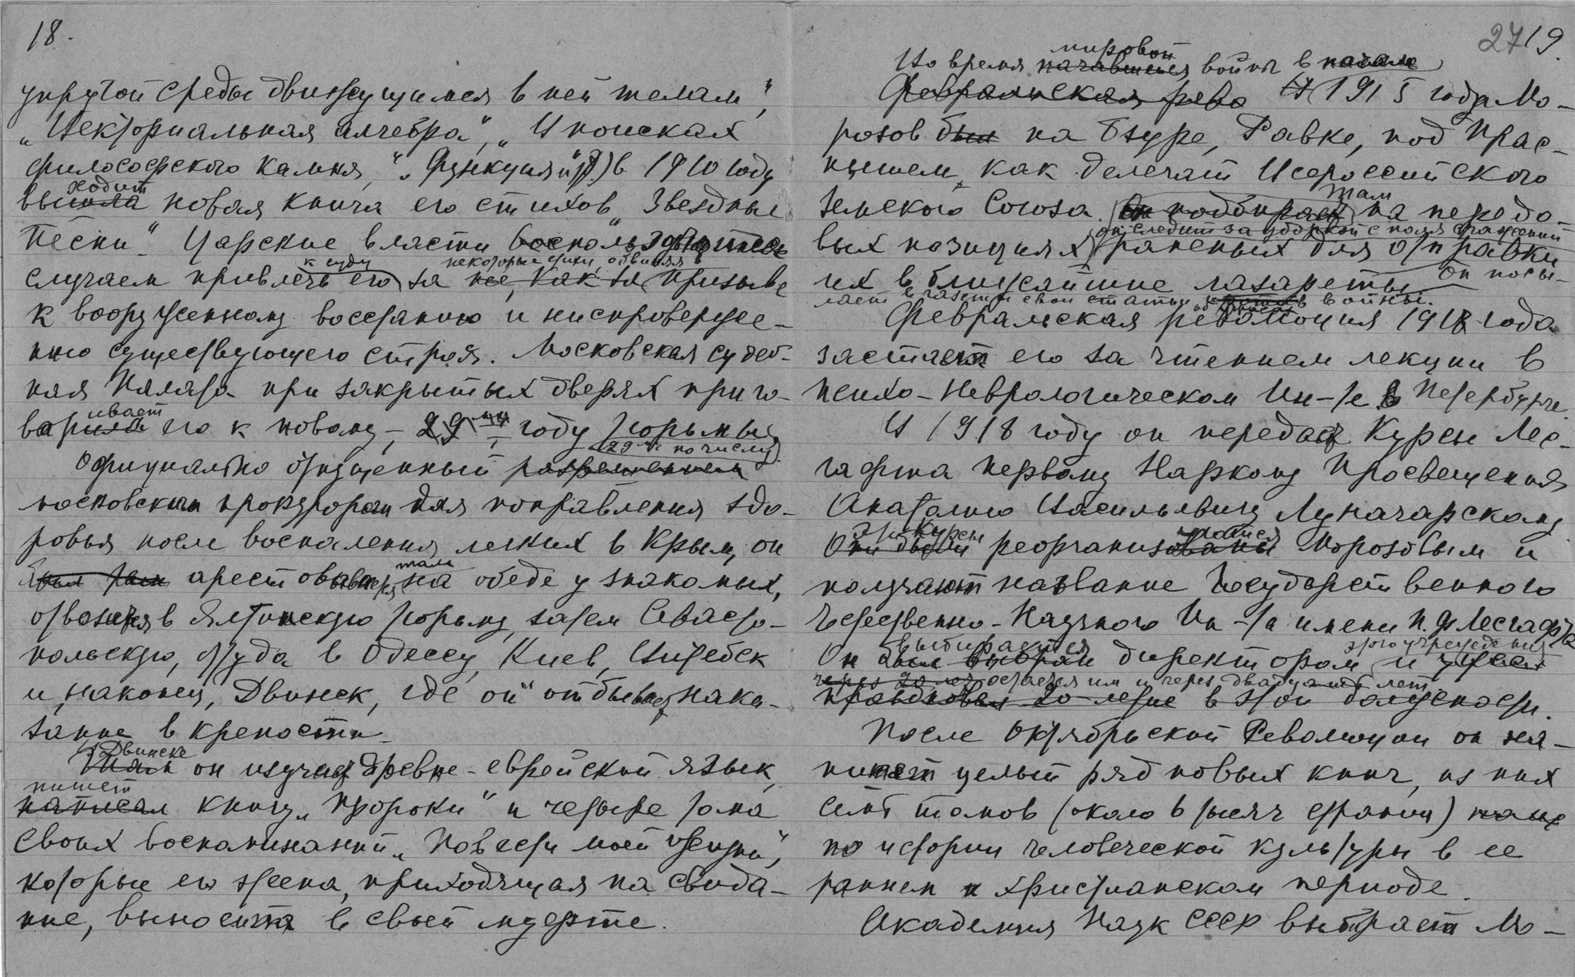 18.
упругой среды движущимся в ней телам",
„Векториальная алгебра", „В поисках
философского камня", „Функция" в 1910 году
ходит
вышла новая книга его стихов „Звездные
Песни" Царские власти воспользовались
к суду некоторые стихи, обвиняя в
случаем привлечь его за нее, как за призыве
к вооруженному восстанию и ниспровержe-
нию существующего строя. Московская судеб-
ная Палата при закрытых дверях приго-
ивает
варила его к новому, 29 му году тюрьмы
29-й по числу
Официально отпущенный разрешением
московским прокурором для поправления здо-
ровья после воспаления легких в Крым, он
там
был там арестовывается на обеде у знакомых,
отвозится в Ялтинскую тюрьму, затем Севасто-
польскую, оттуда в Одессу, Киев, Витебск
и, наконец, Двинск, где он отбывает нака-
зание в крепости.
В Двинске
Там он изучает древне-еврейский язык,
пишет
написал книгу „Пророки" и четыре тома
своих воспоминаний „Повести моей жизни",
которые его жена, приходящая на свида-
ние, выносит в своей муфте.
27 19.
мировой
Во время начавшейся войны в начале
Февральская рево В 1915 года Мо-
розов был на Бзуре, Равке, под Прас-
нышем, как делегат Всероссийского
там
Земского Союза. Он подбирает на передо-
он следит за уборкой с поля сражений
вых позициях раненых для отправки
их в ближайшие лазареты. Он посы-
лает в газеты свои статьи против войны.
Февральская революция 1917 года
застает его за чтением лекции в
Психо-Неврологическом Ин-те в Петербурге.
В 1918 году он передает Курсы Лес-
гафта первому Наркому Просвещения
Анатолию Васильевичу Луначарскому
Эти Курсы
Они были реорганизованы Морозовым и
получают название Государственного
Естественно-Научного Ин-та имени П.Ф. Лесгафта
выбирается этого учреждения
Он был выбран директором и
через 20 лет остается им и через двадцать лет
проводовал 20-летие в этой должности.
После Октябрьской Революции он на-
пишет целый ряд новых книг, из них
семь томов (около 6 тысяч страниц)
по истории человеческой культуры в ее
раннем и христианском периоде.
Академия Наук СССР выбирает Мо-